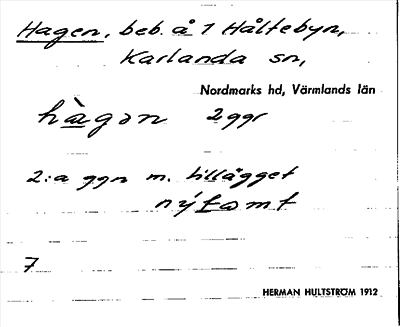 Hagen, beb. å 1 Håltebyn,
Karlanda sn,
Nordmarks hd, Värmlands län
hàgǝn 2 ggr
2:a ggn m. tillägget
nýtomt
7
HERMAN HULTSTRÖM 1912